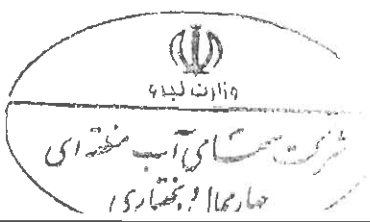 وزارت نیرو
شرکت سهامی آب منطقه ای
چهارمحال و بختیاری